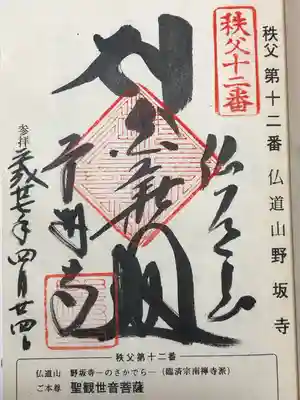 秩父 第十二番 仏道山 野坂寺
秩父十二番
仏道山
野坂寺
参拝
年 四月廿四日
秩父第十二番
仏道山 野坂寺―のさかでら―(臨済宗南禅寺派)
ご本尊 聖観世音菩薩